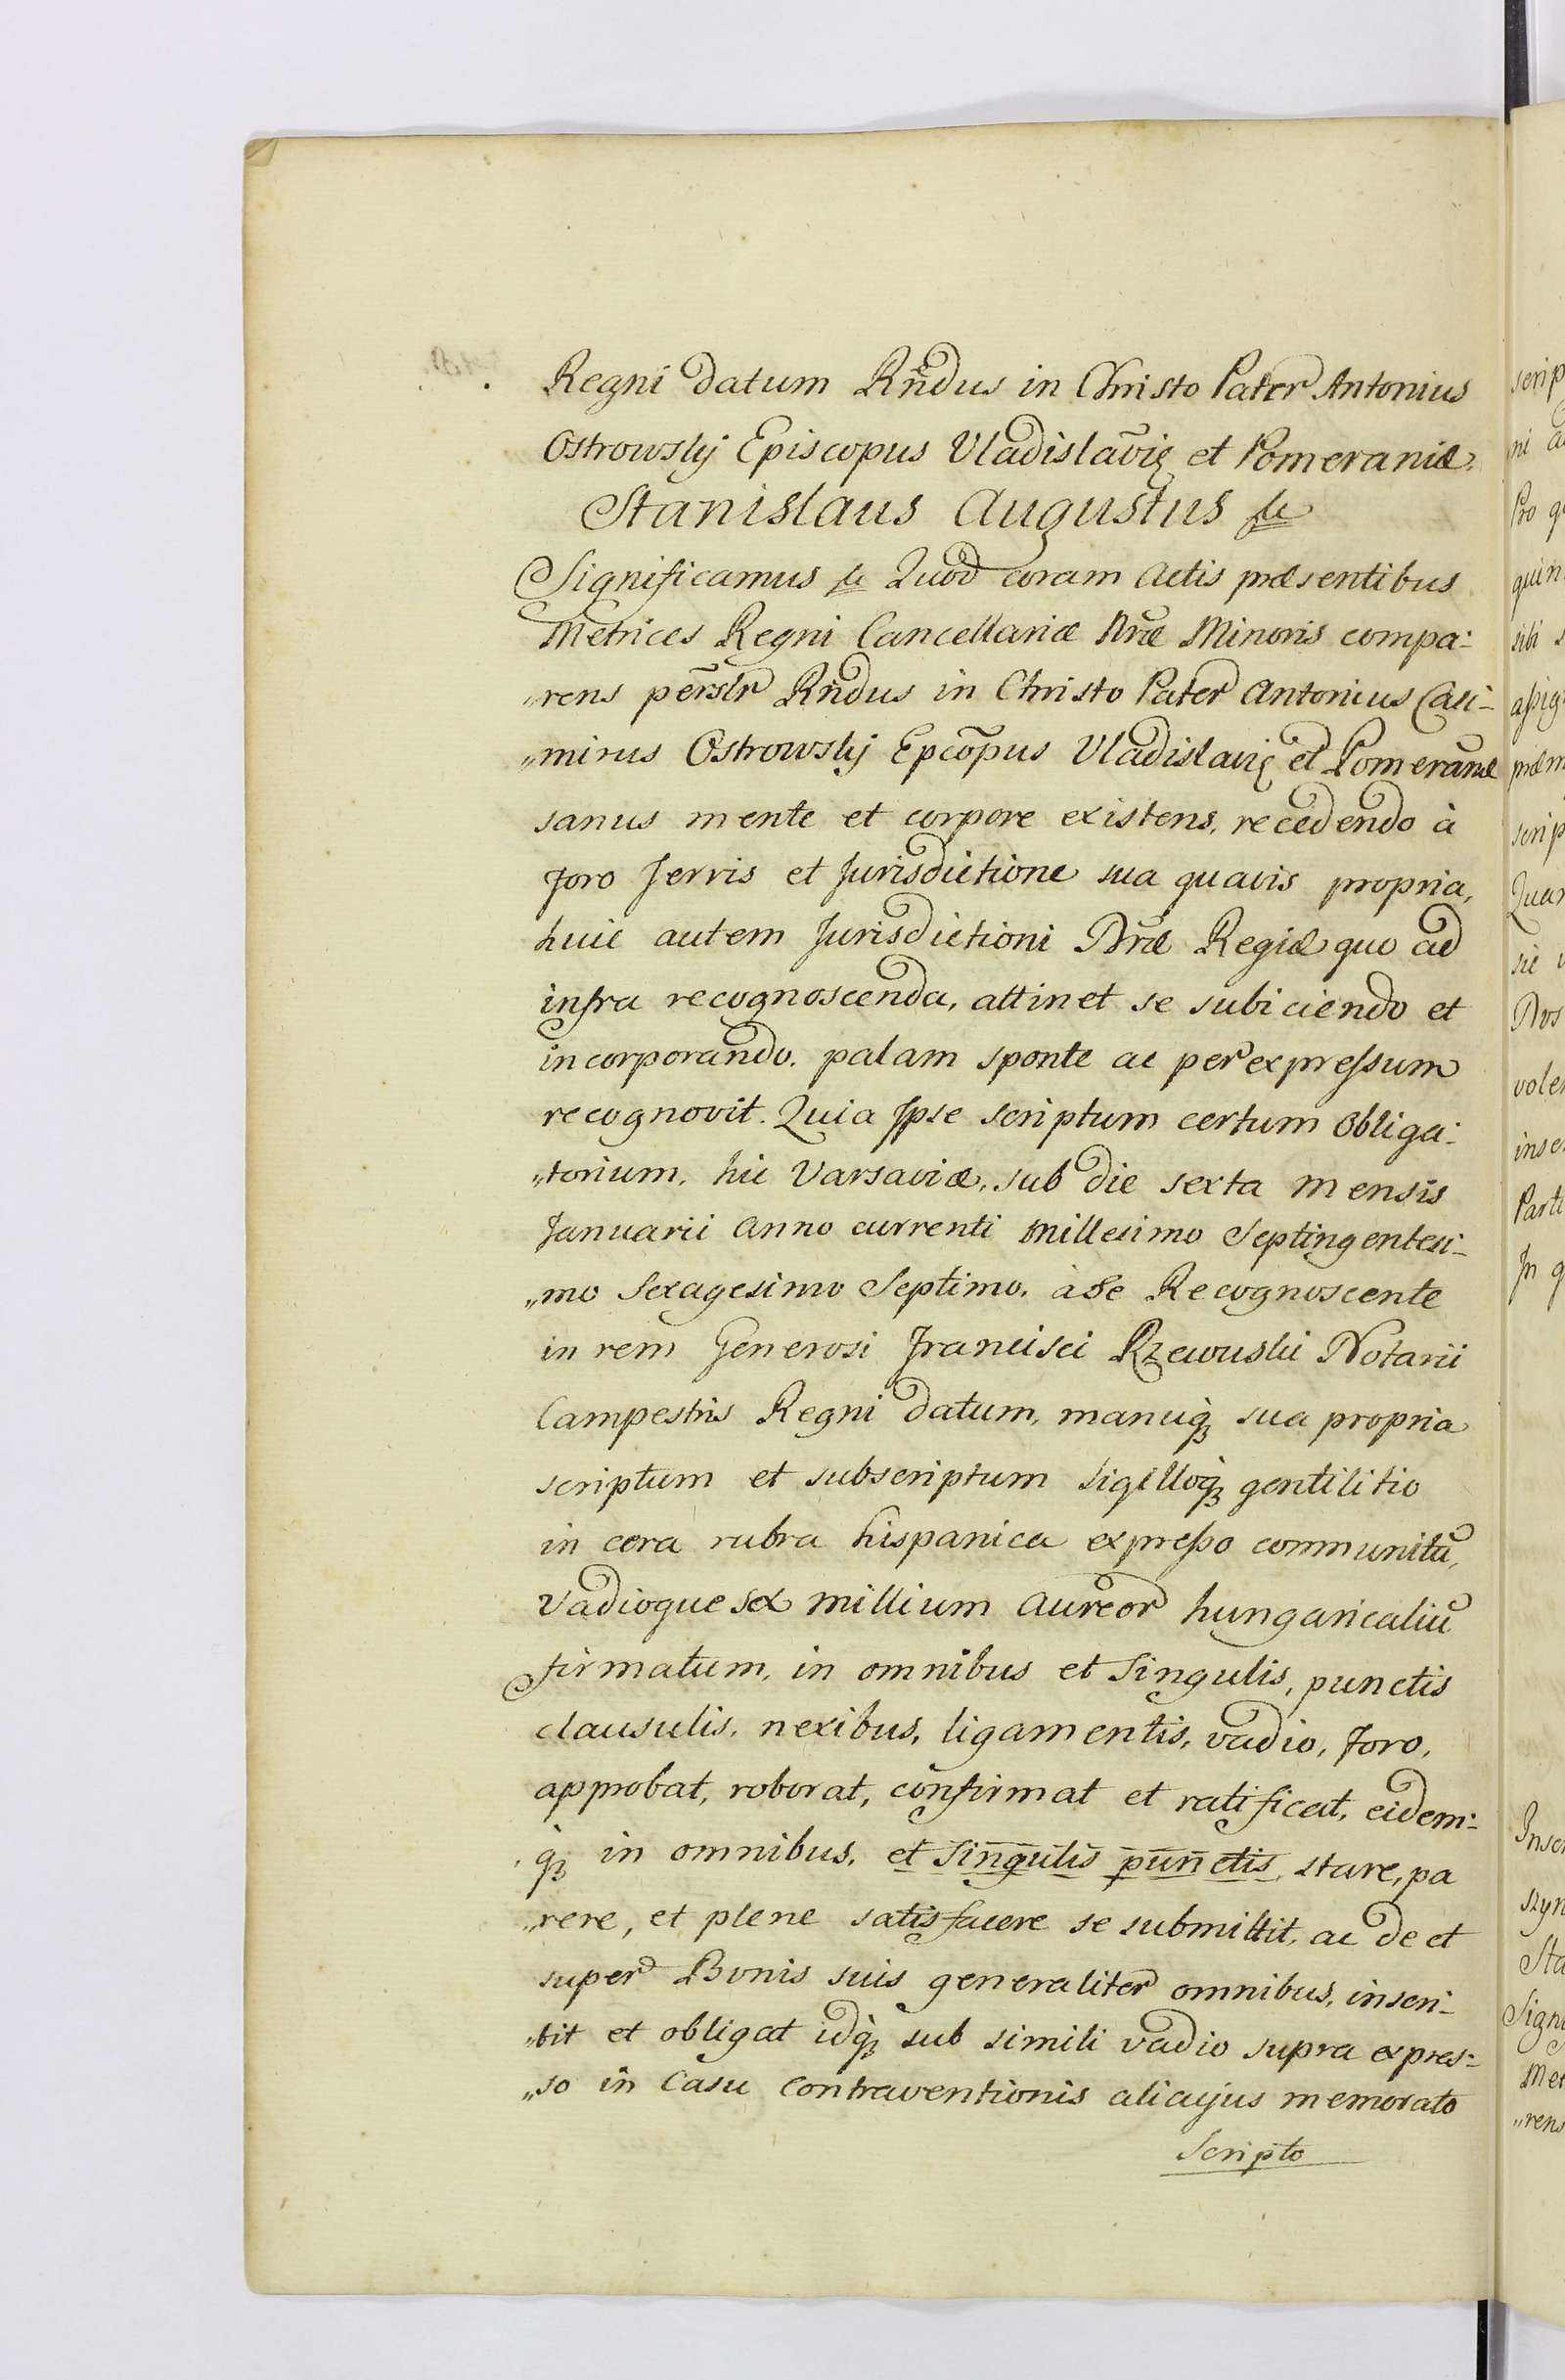 Regni datum Rñdus in Christo Pater Antonius
Ostrowskÿ Episcopus Vladislaviȩ et Pomeraniæ.
Stanislaus Augustus &c
Significamus &c Quod coram Actis præsentibus
Metrices Regni Cancellariæ Nr̃æ Minoris compa:
„rens per̃slr Rñdus in Christo Pater Antonius Casi-
„mirus Ostrowskÿ Epcõpus Vladislaviȩ et Pomeraniæ
sanus mente et corpore existens, recedendo à
Foro Terris et Jurisdictione sua quavis propria,
huic autem Jurisdictioni Nr̃æ Regiæ quo ad
infra recognoscenda, attinet se subiciendo et
incorporando. palam sponte ac per expressum
recognovit. Quia Ipse scriptum certum obliga:
„torium, hic Varsaviæ, sub die sexta mensis
Januarii Anno currenti millesimo Septingentesi-
„mo Sexagesimo Septimo, à se Recognoscente
in rem Generosi Francisci Rzewuski Notarii
Campestris Regni datum, manuq́ꝫ sua propria
scriptum et subscriptum sigilloq́ꝫ gentilitio
in cera rubra hispanica expresso communitũ,
Vadioque sex millium Aureor hungaricaliũ
firmatum, in omnibus et singulis, punctis
clausulis, nexibus, ligamentis, vadio, Foro,
approbat, roborat, confirmat et ratificat, eidem:
q́ꝫ in omnibus, et singulis punctis, stare, pa
„rere, et plene satisfacere se submittit, ac de et
super Bonis suis generaliter omnibus, inscri-
„bit et obligat idq́ꝫ sub simili vadio supra expres:
„so in Casu Contraventionis alicujus memorato
Scripto
scrip
ni
Pro q
quin
sibi s
assig
præm
scrip
Quar
sic
Nos
vole
inse
Parti
In q
Inscr
szyn
Sta
Signi
Met
„rens